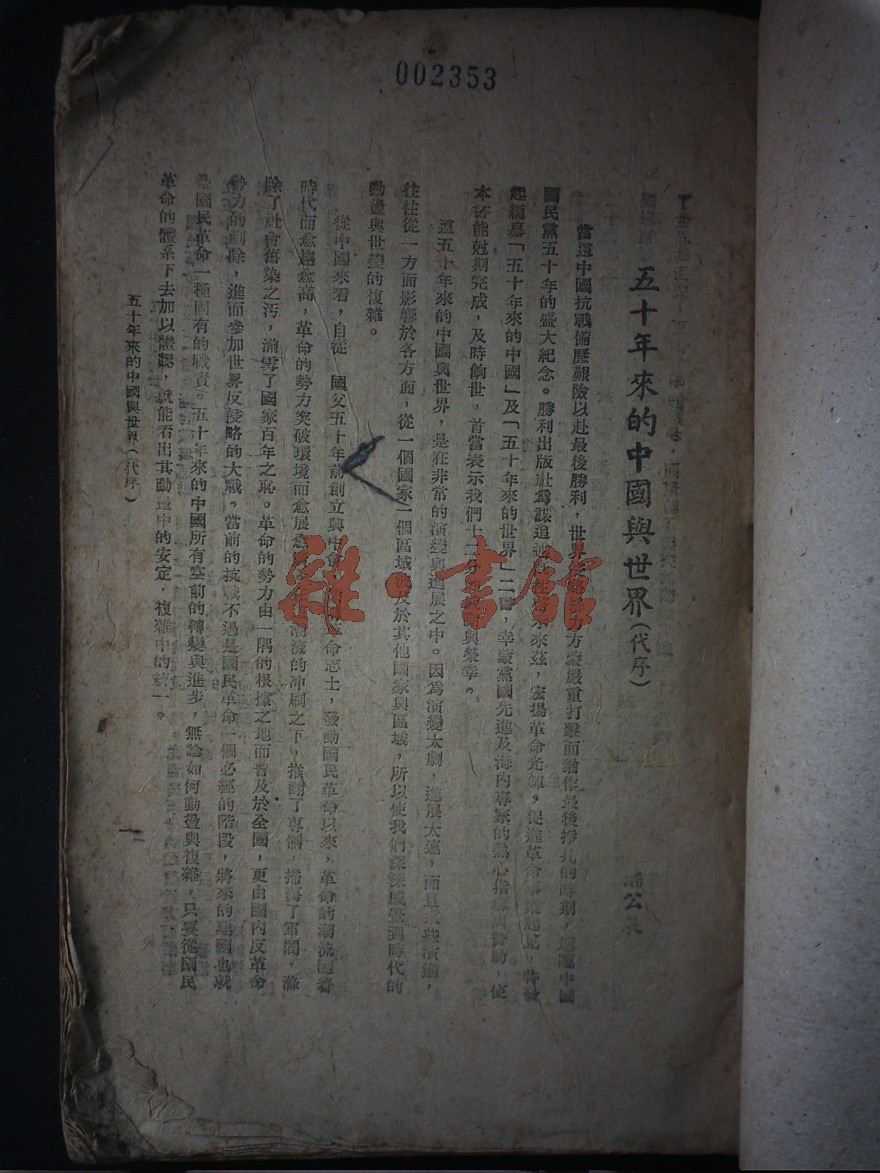 002353
五十年來的中國與世界（代序）
潘公展
當這中國抗戰備歷艱險以赴最後勝利，世界方蒙嚴重打擊而猶作最後掙扎的時期，適臨中國
國民黨五十年的盛大紀念。勝利出版社為謀追述既往未來茲，宏揚革命光輝，促進革命
起編纂「五十年來的中國」及「五十年來的世界」二書，幸蒙黨國先進及海內專家的熱心指導與贊助，使
本書能尅期完成，及時餉世，首當表示我們十二分與榮幸。
這五十年來的中國與世界，是在非常的演變與進展之中。因為演變太劇，進展太速，而且這些演進，
往往從一方面影響於各方面，從一個國家一個區域波及於其他國家與區域，所以使我們深深感覺到時代的
動盪與世變的複雜。
從中國來看，自從　國父五十年前創立興中會革命志士，發動國民革命以來，革命的潮流隨着
時代而愈趨愈高，革命的勢力突破環境而愈展愈潮流的沖刷之下，推翻了專制，掃蕩了軍閥，滌
除了社會舊染之汚，湔雪了國家百年之恥。革命的勢力由一隅的根據之地而普及於全國，更由國內反革命
勢力的剷除，進而參加世界反侵略的大戰。當前的抗戰不過是國民革命一個必經的階段，將來的建國也就
是國民革命一種固有的職責。五十年來的中國所有空前的轉變與進步，無論如何動盪與複雜，只要從國民
革命的體系下去加以體認，就能看出其動盪中的安定，複雜中的統一。
五十年來的中國與世界（代序）
一
雜·書館